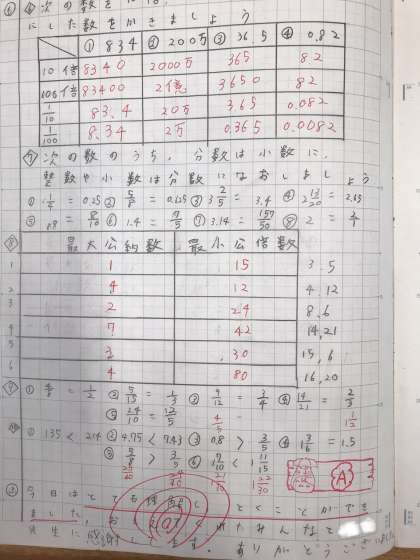 次の数を
にした数をかきましょう
① 834 ② 200万 ③ 36.5 ④ 0.82
10倍 8340 2000万 365 8.2
100倍 83400 2億 3650 82
1/10 83.4 20万 3.65 0.082
1/100 8.34 2万 0.365 0.0082
⑦ 次の数のうち、分数は小数に、
整数や小数は分数になおしましょう
① 1/4 = 0.25 ② 5/8 = 0.625 ③ 3 2/5 = 3.4 ④ 2 13/20 = 2.65
⑤ 0.8 = 8/10 ⑥ 1.4 = 7/5 ⑦ 3.14 = 157/50 ⑧ 2 = 2/1
⑧ 最大公約数 最小公倍数
1 1 15 3.5
2 4 12 4.12
3 2 24 8.6
4 7 42 14,21
5 3 30 15,6
6 4 80 16,20
⑨ ① 4/8 = 1/2 ② 5/15 = 1/3 ③ 9/12 = 3/4 ④ 14/21 = 2/3
⑤ 24/10 = 12/5
⑩ ① 135 < 214 ② 4.75 < 7.43 ③ 0.8 > 3/5 ④ = 1.5
⑤ 5/6 > 3/5 ⑥ 7/10 < 11/15
A
今日はとても
ました。みんなと
先生に感謝します。ありがとうございました